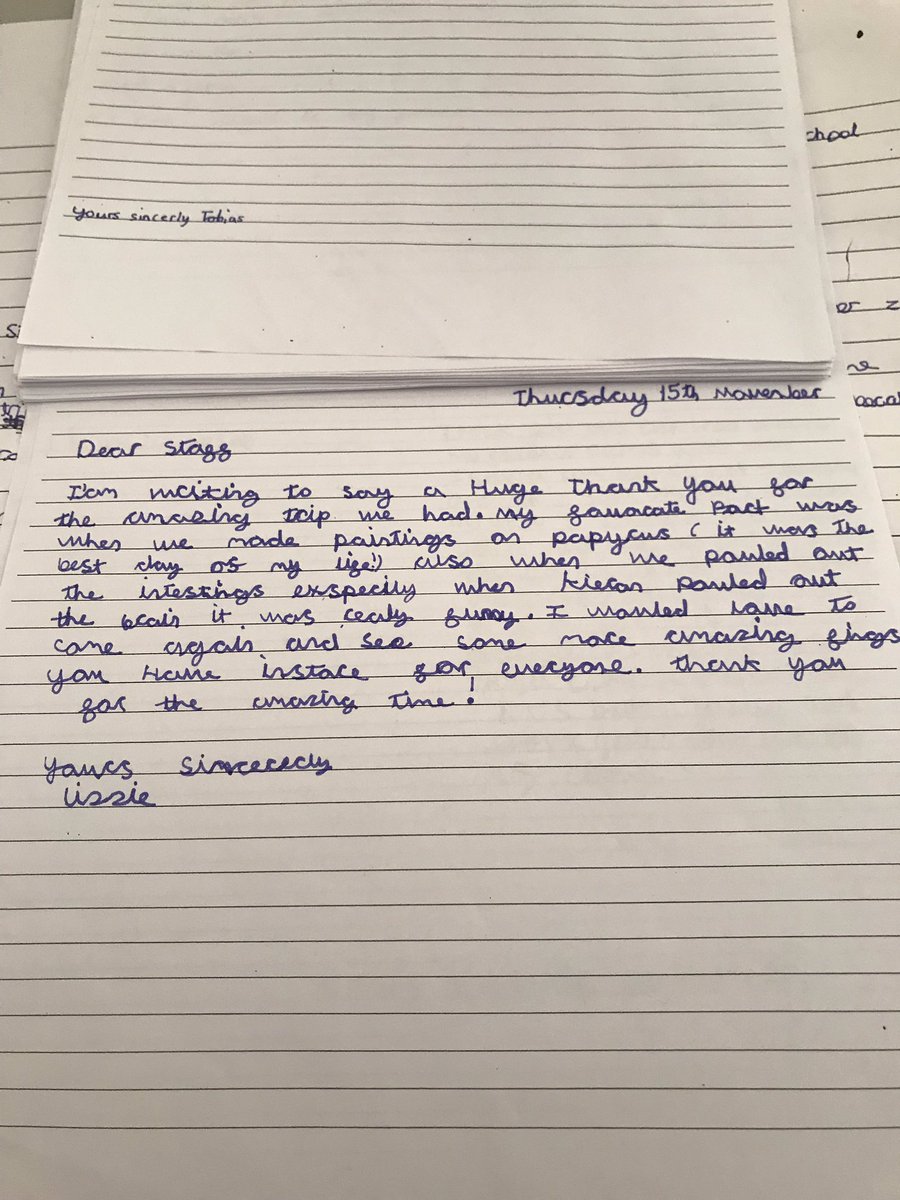 chool
Yours sincerly Tobias
er
ne
Thursday 15th November
Dear Stagg
I'am writing to say a Huge thank you for
the amazing trip we had. My favoracate Part was
when we made paintings on papyrus ( it was the
best day of my life!) also when we pouled out
the intestings exspecily when Kieran pouled out
the brain it was realy funny. I would love to
come again and see some more amazing fings
you Have instore for everyone. thank you
for the amazing Time!
Yours Sincerely
Lizzie